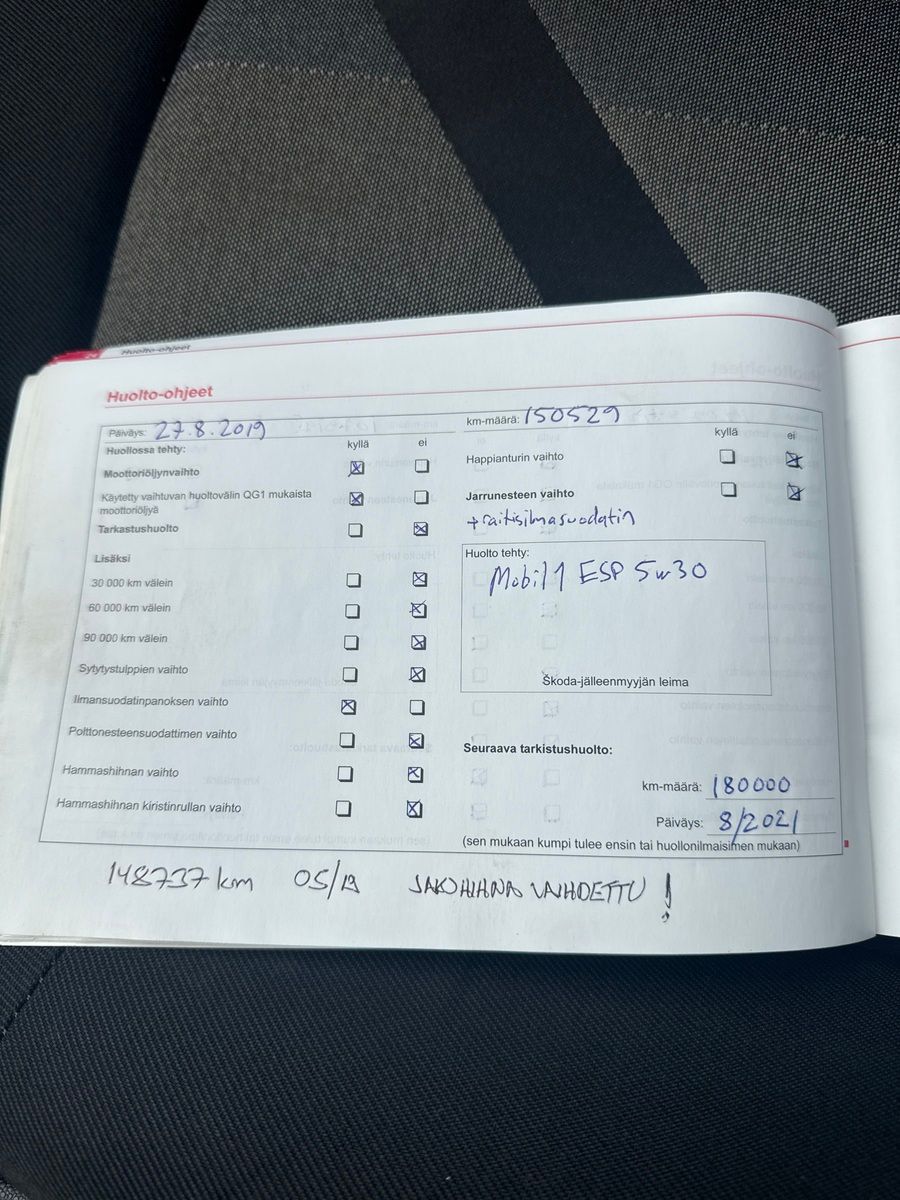 24 Huolto-ohjeet
Huolto-ohjeet
Päiväys: 27.8.2019
Huollossa tehty: kyllä ei
Moottoriöljynvaihto
Käytetty vaihtuvan huoltovälin QG1 mukaista
moottoriöljyä
Tarkastushuolto
Lisäksi
30 000 km välein
60 000 km välein
90 000 km välein
Sytytystulppien vaihto
Ilmansuodatinpanoksen vaihto
Polttonesteensuodattimen vaihto
Hammashihnan vaihto
Hammashihnan kiristinrullan vaihto
km-määrä: 150529
kyllä ei
Happianturin vaihto
Jarrunesteen vaihto
+raitisilmasuodatin
Huolto tehty:
Mobil1 ESP 5w30
Škoda-jälleenmyyjän leima
Seuraava tarkistushuolto:
km-määrä: 180000
Päiväys: 8/2021
(sen mukaan kumpi tulee ensin tai huollonilmaisimen mukaan)
148737 km 05/19 JAKOHIHNA VAIHDETTU !